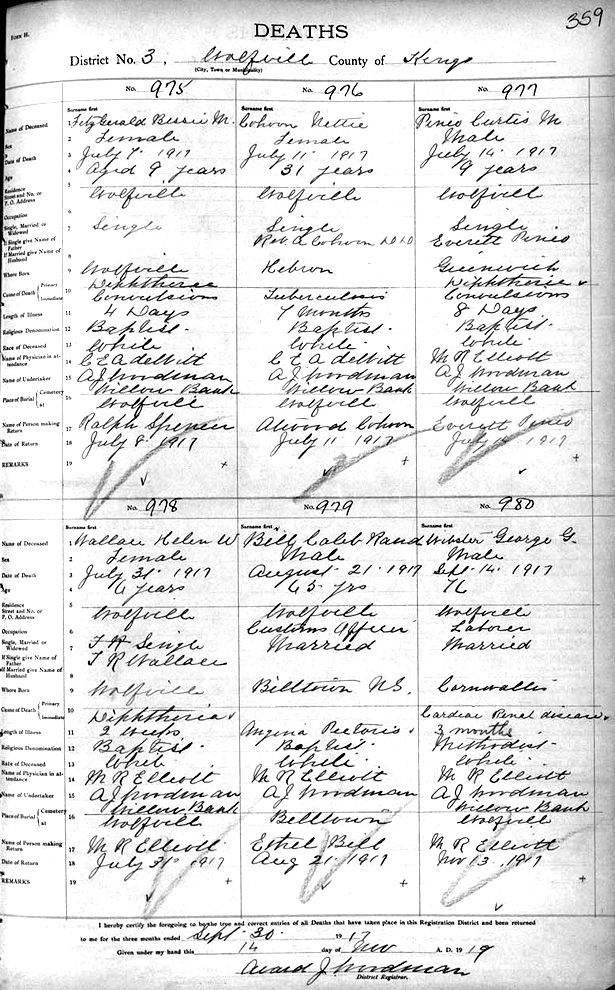 FORM H.
DEATHS
359
District No. 3, Wolfvill County of Kings
(City, Town or Municipality)
No. 975 No. 976 No. 977
Surname first Surname first Surname first
Name of Deceased 1 FitzGerald Bessie M. Cohoon Nettie Pineo Curtis M
Sex 2 Female Female Male
Date of Death 3 July 7. 1917 July 11. 1917 July 14. 1917
Age 4 Aged 9 years 31 years 9 years
Residence Street and No. or P. O. Address 5 Wolfville Wolfville Wolfville
Occupation 6
Single, Married or Widowed 7 Single Single Single
If Single give Name of Father Rev. A Cohoon D D Everett Pineo
If Married give Name of Husband 8
Where Born 9 Wolfville Hebron Greenwich
Cause of Death Primary Diphtheria Diphtheria
Immediate 10 Convulsions Tuberculosis Convulsions
Length of Illness 11 4 Days 7 Months 8 Days
Religious Denomination 12 Baptist. Baptist. Baptist.
Race of Deceased 13 White White White
Name of Physician in attendance 14 C E A deWitt C E A deWitt M R Elliott
Name of Undertaker 15 A J Woodman A J Woodman A J Woodman
Place of Burial Cemetery at Willow Bank Willow Bank Willow Bank
16 Wolfvill Wolfvill Wolfvill
Name of Person making Return 17 Ralph Spencer Atwood Cohoon Everett Pineo
Date of Return 18 July 8. 1917 July 11 1917 July 1917
REMARKS 19
No. 978 No. 979 No. 980
Surname first Surname first Surname first
Name of Deceased 1 Wallace Helen W Bill Caleb Rand Webster George G.
Sex 2 Female Male Male
Date of Death 3 July 31. 1917 August 21. 1917 Sept 14. 1917
Age 4 years 65 yrs 76
Residence Street and No. or P. O. Address 5 Wolfville Wolfville Wolfville
Occupation 6 Customs Officer Laborer
Single, Married or Widowed 7 Single Married Married
If Single give Name of Father F R Wallace
If Married give Name of Husband 8
Where Born 9 Wolfville Billtown N.S. Cornwallis
Cause of Death Primary Immediate 10 Diphtheria Angina Pectoris Cardiac Renal disease
Length of Illness 11 2 weeks 3 months
Religious Denomination 12 Baptist. Baptist. Methodist.
Race of Deceased 13 White White White
Name of Physician in attendance 14 M R Elliott M R Elliott M R Elliott
Name of Undertaker 15 A J Woodman A J Woodman A J Woodman
Place of Burial Cemetery at Willow Bank Willow Bank
16 Wolfvill Belltown Wolfvill
Name of Person making Return 17 M R Elliott Ethel Bill M R Elliott
Date of Return 18 July 31. 1917 Aug 21. 1917 Nov 13. 1917
REMARKS 19
I hereby certify the foregoing to be the true and correct entries of all Deaths that have taken place in this Registration District and been returned
to me for the three months ended Sept. 30. 1917
Given under my hand this 14 day of Nov A. D. 1919
Avard J Woodman
District Registrar.